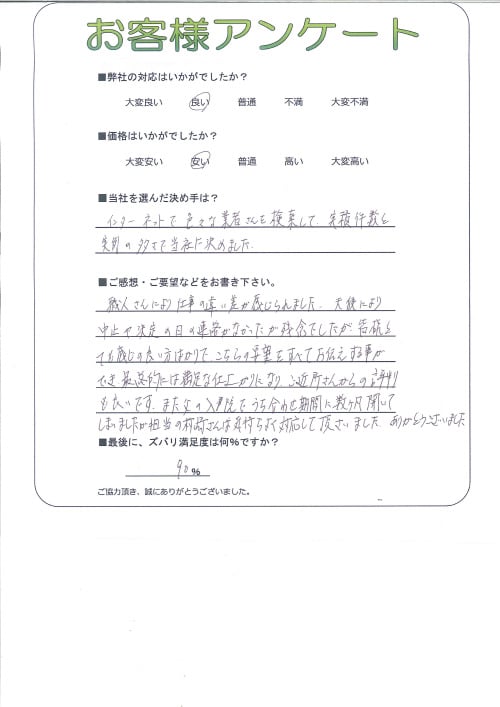 お客様アンケート
■弊社の対応はいかがでしたか？
大変良い 良い 普通 不満 大変不満
■価格はいかがでしたか？
大変安い 安い 普通 高い 大変高い
■当社を選んだ決め手は？
インターネットで色々な業者さんを検索して、実績件数と
実例の多さで当社に決めました.
■ご感想・ご要望などをお書き下さい。
職人さんにより仕事の違い差が感じられました. 天候により
中止や決定の日の連絡がなかったが残念でしたが 皆様と
ても感じの良い方ばかりで、こちらの要望をすべてお伝えする事が
でき 最終的には満足な仕上がりになり、ご近所さんからの評判
も良いです. また父の入院でうち合わせ期間に数ヶ月開いて
しまいましたが担当の村崎さんは気持ちよく対応して頂きいました ありがとうございました
■最後に、ズバリ満足度は何％ですか？
90％
ご協力頂き、誠にありがとうございました。